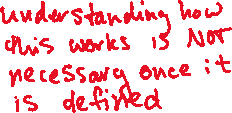 understanding how
this works is NOT
necessary once it
is defined